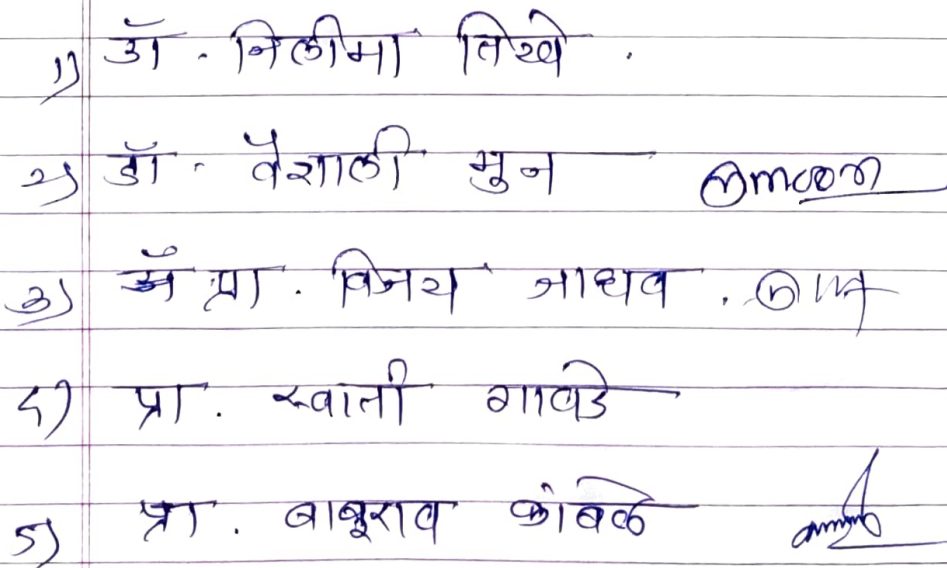 १) डॉ. निलीमा तिखे.
२) डॉ. वैशाली मुन
३) प्रा. विजय जाधव.
४) प्रा. स्वाती गावडे
५) प्रा. बाबूराव कांबळे